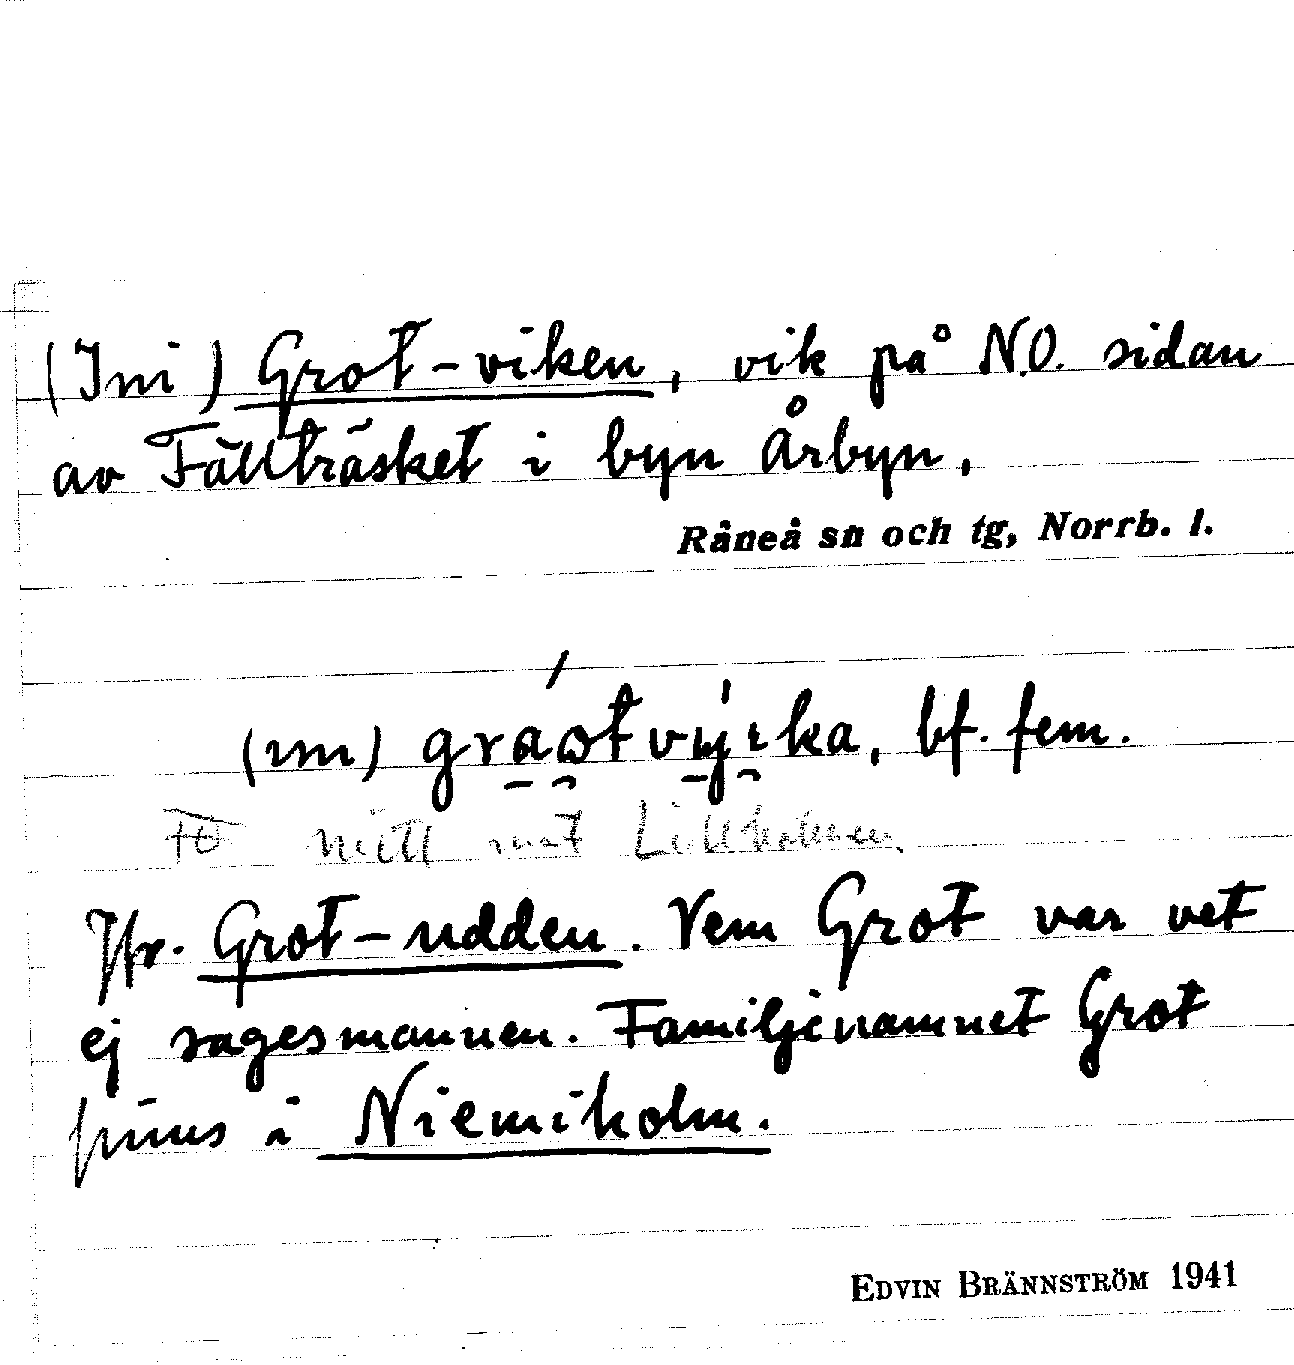 (Ini) Grot-viken, vik på N.O. sidan
av Fällträsket i byn Årbyn.
Råneå sn och tg, Norrb. l.
bf. fem.
mitt mot Lillholmen.
Jfr. Grot-udden. Vem Grot var vet
ej sagesmannen. Familjenamnet Grot
finns i Niemiholm.
EDVIN BRÄNNSTRÖM 1941